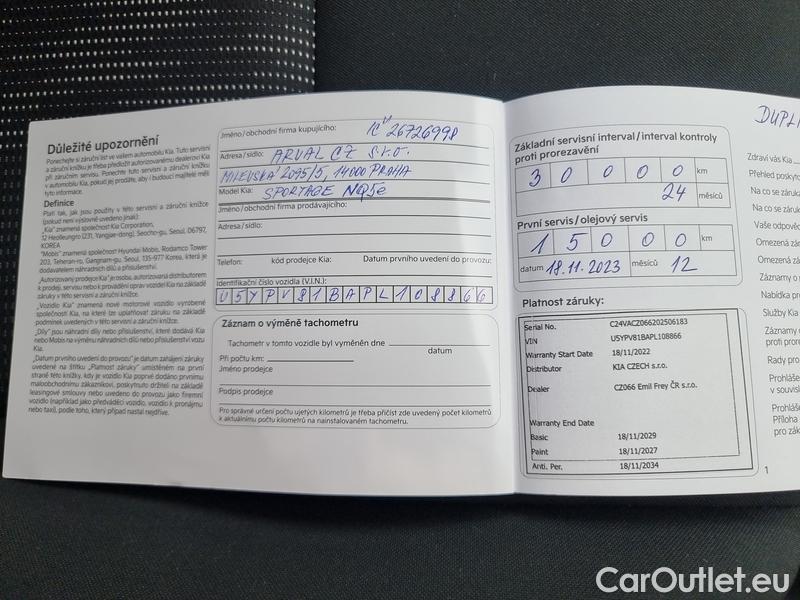 Důležité upozornění
Ponechejte si záruční list ve vašem automobilu Kia. Tuto servisní
a záruční knížku je třeba předložit autorizovanému dealerovi Kia
při záručním servisu. Ponechte tuto servisní a záruční knížku
v automobilu Kia, pokud jej prodáte, aby i budoucí majitelé měli
tyto informace.
Definice
Platí tak, jak jsou použity v této servisní a záruční knížce
(pokud není výslovně uvedeno jinak):
„Kia" znamená společnost Kia Corporation,
12 Heolleungro (231, Yangjae-dong), Seocho-gu, Seoul, 06797,
KOREA
"Mobis" znamená společnost Hyundai Mobis, Rodamco Tower
203, Teheran-ro, Gangnam-gu, Seoul, 135-977 Korea, která je
dodavatelem náhradních dílů a příslušenství.
„Autorizovaný prodejce Kia" je osoba, autorizovaná distributorem
k prodeji, servisu nebo k provádění oprav vozidel Kia na základě
záruky v této servisní a záruční knížce.
„Vozidlo Kia" znamená nové motorové vozidlo vyrobené
společností Kia, na které lze uplatňovat záruku na základě
podmínek uvedených v této servisní a záruční knížce.
„Díly" jsou náhradní díly nebo příslušenství, které dodává Kia
nebo Mobis na výměnu náhradních dílů nebo příslušenství vozu
Kia.
„Datum prvního uvedení do provozu" je datum zahájení záruky
uvedené na štítku „Platnost záruky" umístěném na první
straně této knížky, kdy je vozidlo Kia poprvé dodáno prvnímu
maloobchodnímu zákazníkovi, poskytnuto držiteli na základě
leasingové smlouvy nebo uvedeno do provozu jako firemní
vozidlo (například jako předváděcí vozidlo, vozidlo k pronájmu
nebo taxi), podle toho, který případ nastal nejdříve.
Jméno/obchodní firma kupujícího: IČ 26726998
Adresa/sídlo: ARVAL CZ s.r.o.
MILEVSKÁ 2095/5, 14000 PRAHA
Model Kia: SPORTAGE NQ5e
Jméno/obchodní firma prodávajícího:
Adresa/sídlo:
Telefon: kód prodejce Kia: Datum prvního uvedení do provozu:
Identifikační číslo vozidla (V.I.N.):
U5YPV81BAPL108866
Záznam o výměně tachometru
Tachometr v tomto vozidle byl vyměněn dne
datum
Při počtu km:
Jméno prodejce
Podpis prodejce
Pro správné určení počtu ujetých kilometrů je třeba přičíst zde uvedený počet kilometrů
k aktuálnímu počtu kilometrů na nainstalovaném tachometru.
Základní servisní interval/interval kontroly
proti prorezavění
30000 km
24 měsíců
První servis/olejový servis
15000 km
datum 18.11.2023 měsíců 12
Platnost záruky:
Serial No. C24VACZ066202506183
VIN U5YPV81BAPL108866
Warranty Start Date 18/11/2022
Distributor KIA CZECH s.r.o.
Dealer CZ066 Emil Frey ČR s.r.o.
Warranty End Date
Basic 18/11/2029
Paint 18/11/2027
Anti. Per. 18/11/2034
DUPLI
Zdraví vás Kia
Přehled poskyto
Na co se záruka
Na co se záruk
Vaše odpovědn
Omezená zár
Omezená zá
Záznamy o
Nabídka pr
Služby Kia
Záznamy
proti prore
Rady pro
Prohláše
v souvisl
Prohláše
Příloha
pro zák
1
CarOutlet.eu